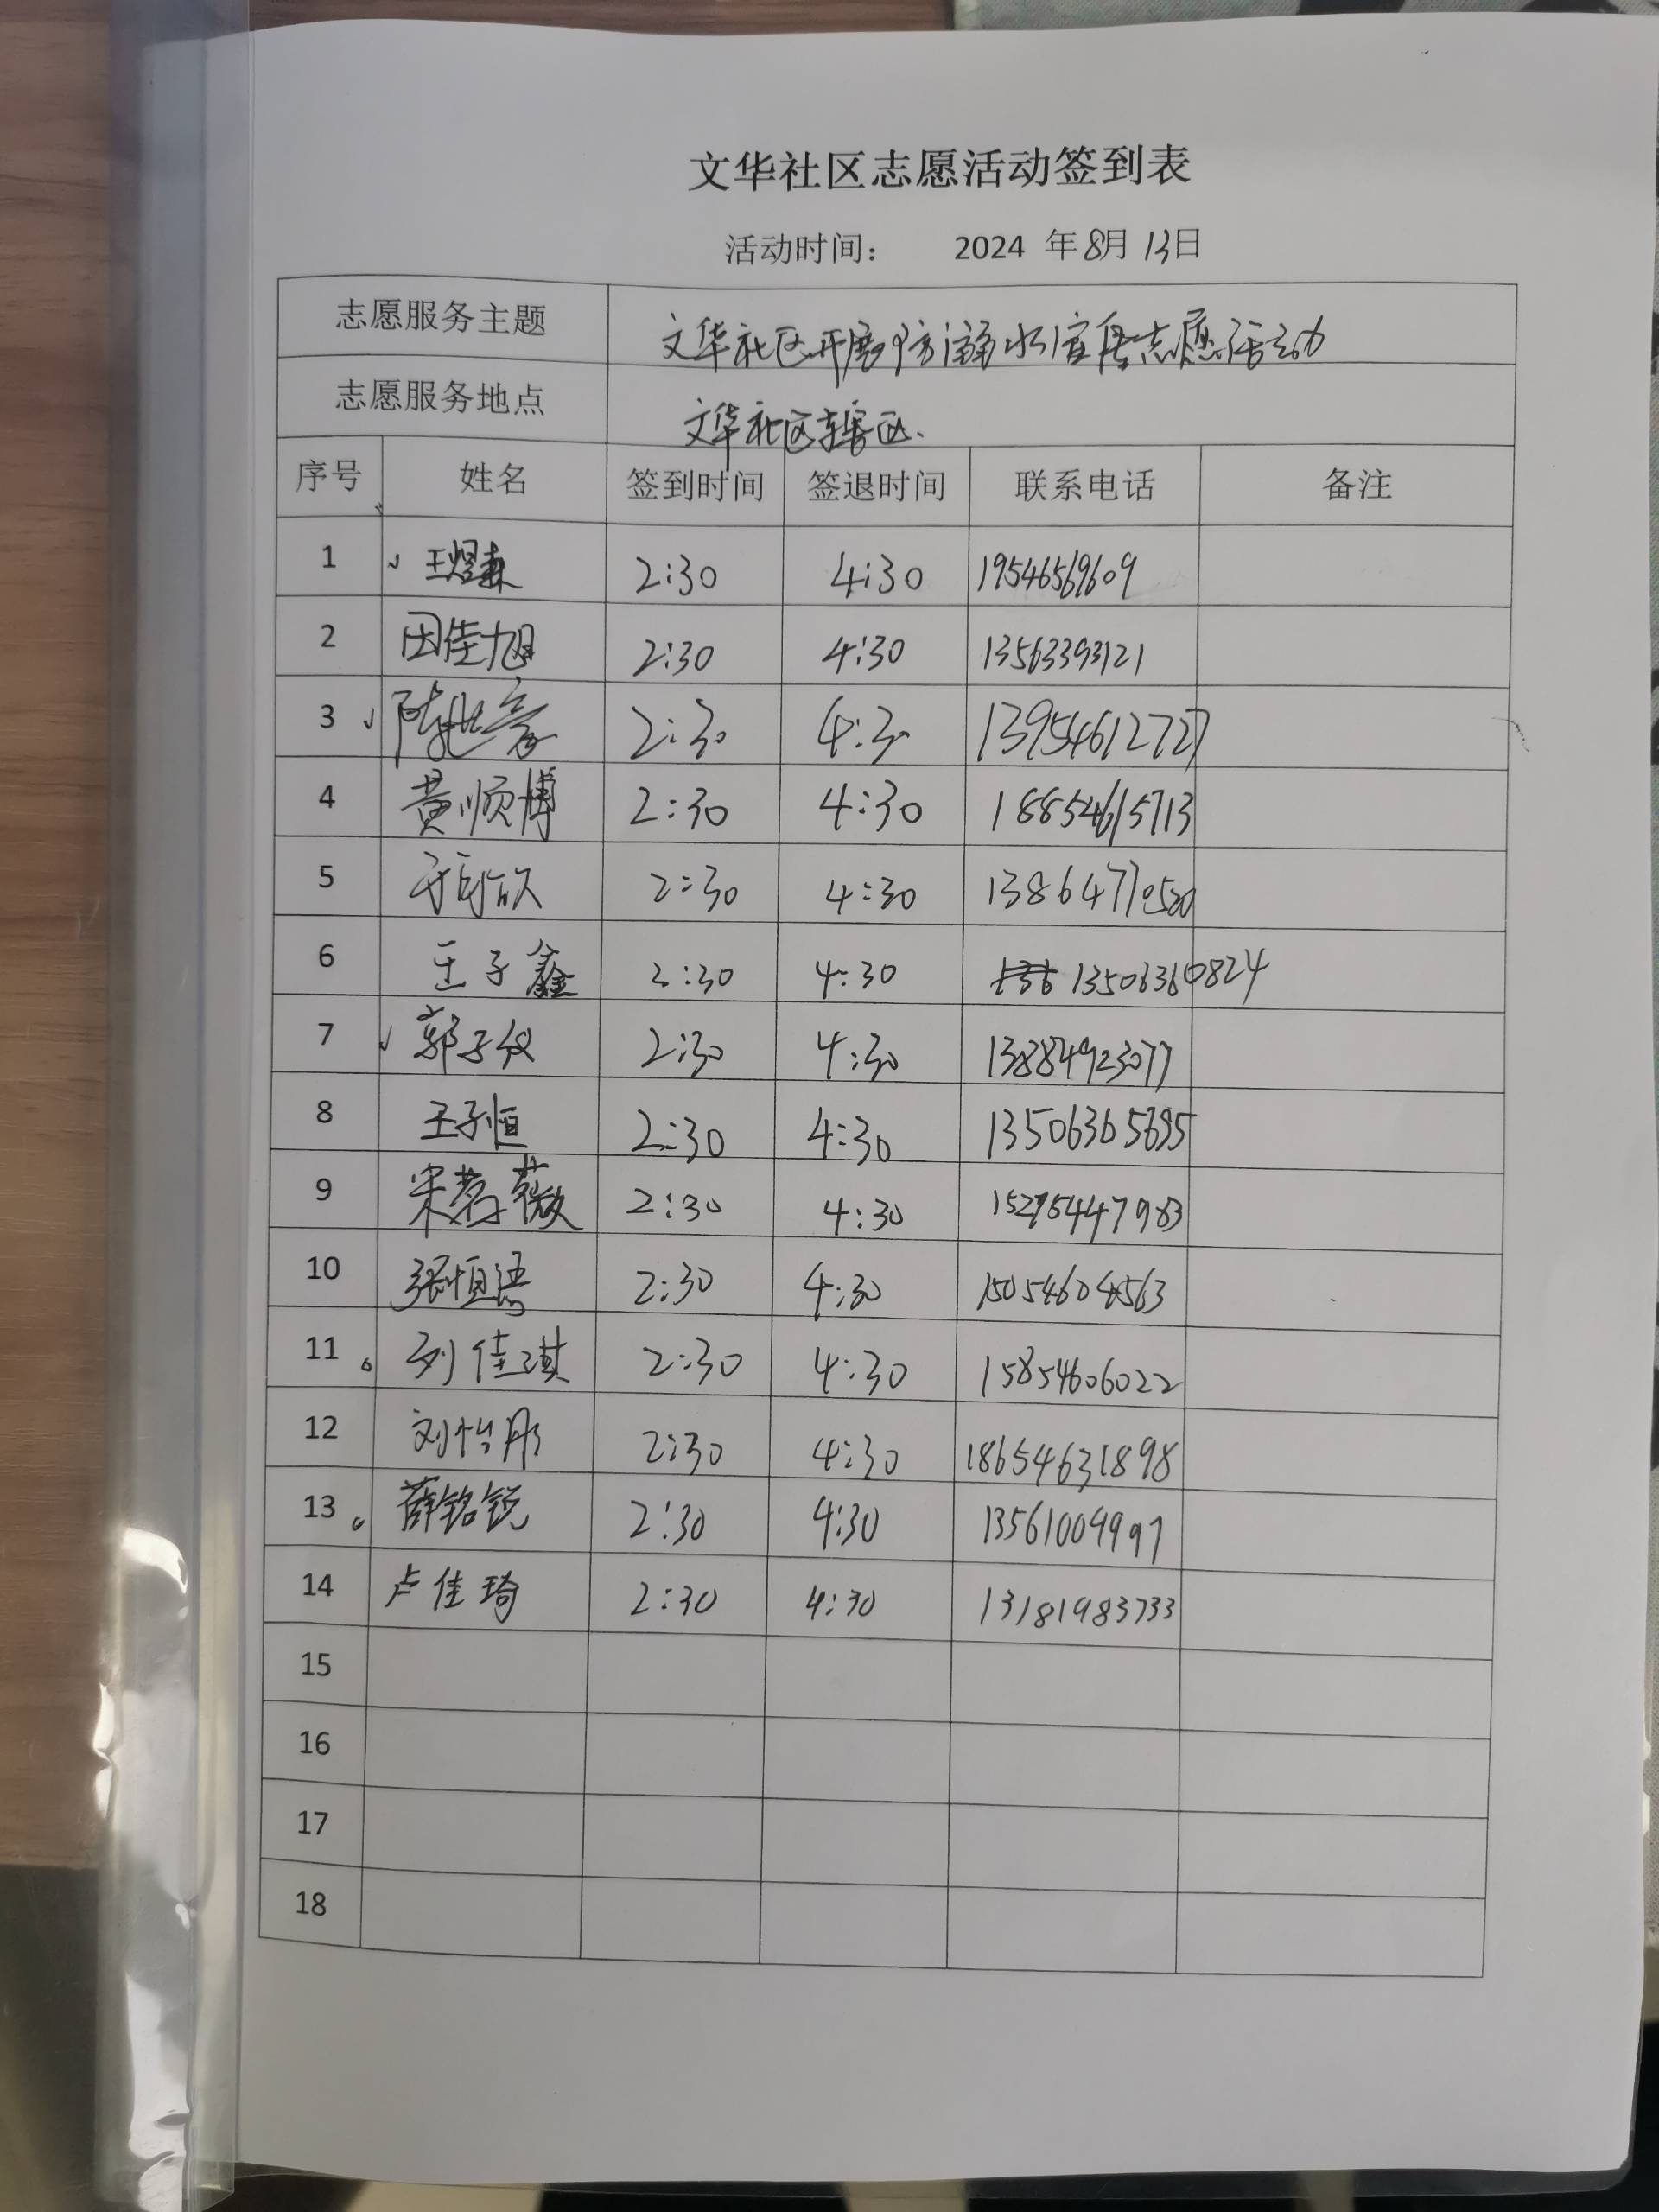 文华社区志愿活动签到表
活动时间： 2024 年8月13日
志愿服务主题 文华社区开展防溺水宣传志愿活动
志愿服务地点 文华社区辖区.
序号 姓名 签到时间 签退时间 联系电话 备注
1 王煜森 2:30 4:30 19546569609
2 田佳旭 2:30 4:30 13563393121
3 2:30 4:30 13954612727
4 黄顺博 2:30 4:30 18854615713
5 2:30 4:30
6 王子鑫 2:30 4:30 13506360824
7 郭子仪 2:30 4:30 13884923077
8 王子恒 2:30 4:30 13506365695
9 宋茗薇 2:30 4:30
10 张恒 2:30 4:30 15054604563
11 刘佳琪 2:30 4:30 15854606022
12 刘怡彤 2:30 4:30 18654631898
13 薛铭锐 2:30 4:30 13561009997
14 卢佳琦 2:30 4:30 13181983733
15
16
17
18